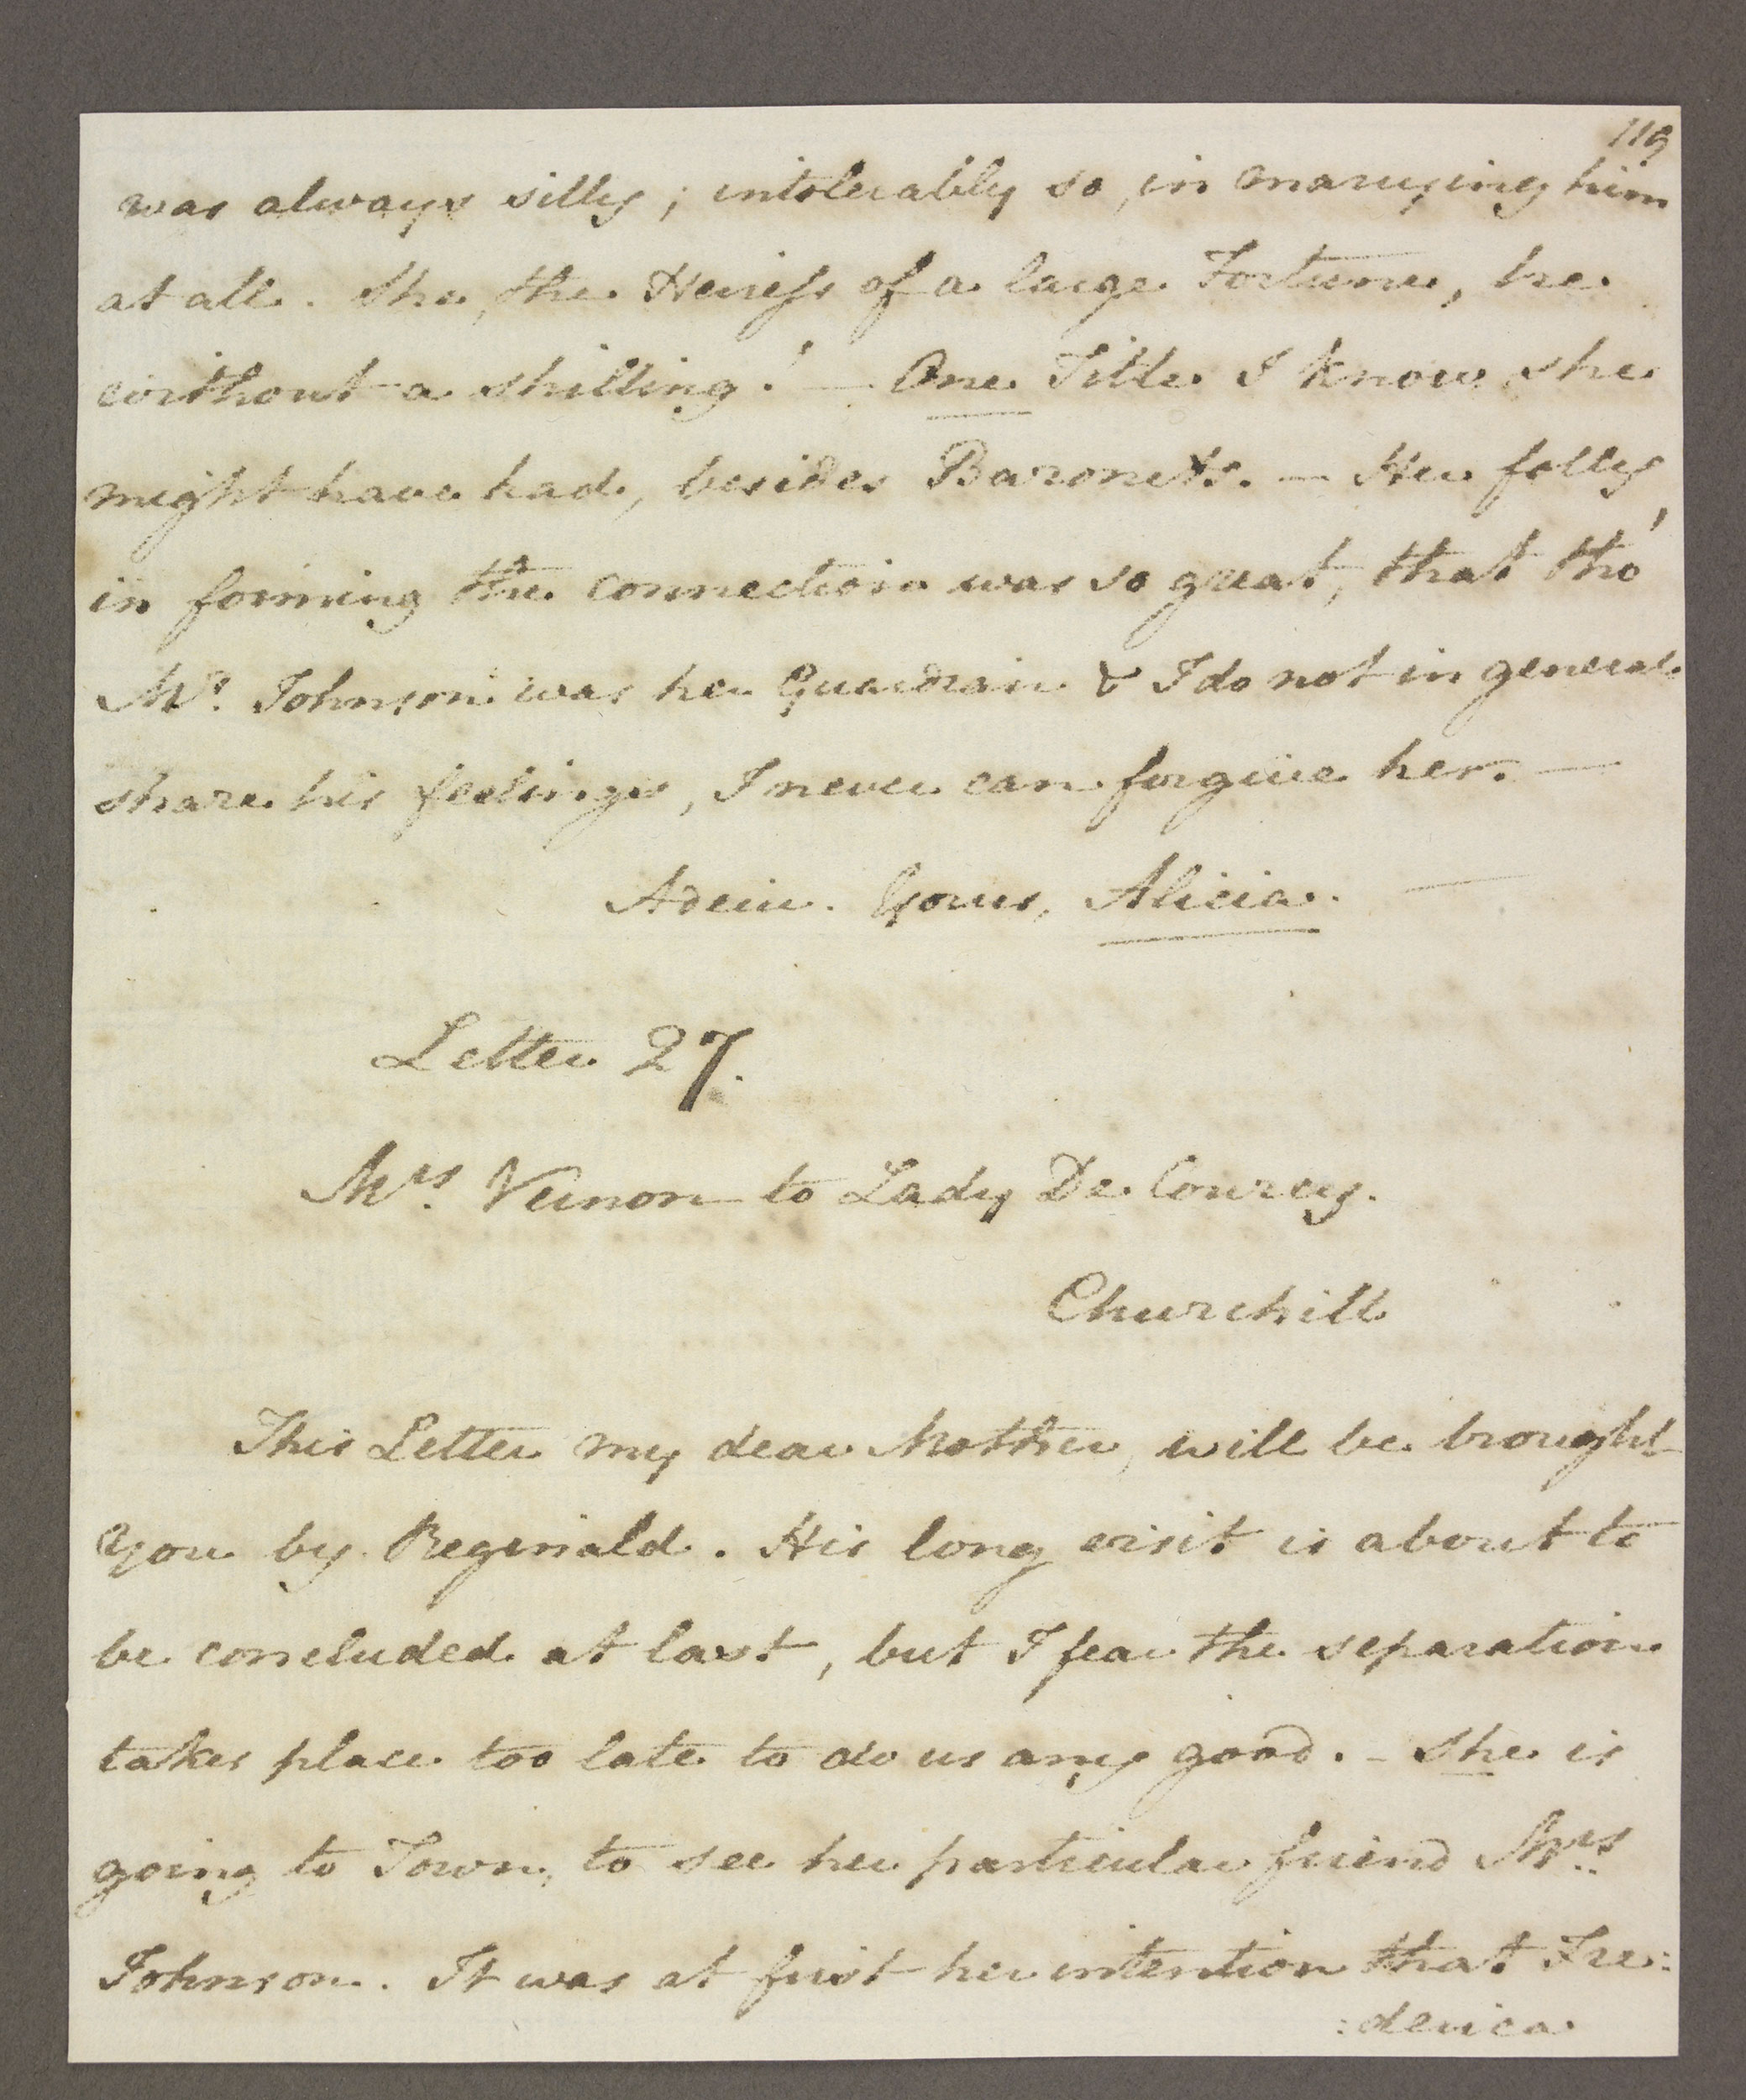 119
was always silly; intolerably so, in marrying him
at all. She, the Heiress of a large Fortune, he
without a shilling! — One Title I know she
might have had, besides Baronets. — Her folly
in forming the connection was so great, that tho'
Mr. Johnson was her Guardian & I do not in general
share his feelings, I never can forgive her. —
Adeiu. Yours, Alicia. —
Letter 27.
Mrs. Vernon to Lady De Courcy.
Churchill
This Letter my dear Mother, will be brought
you by Reginald. His long visit is about to
be concluded at last, but I fear the separation
takes place too late to do us any good. - She is
going to Town, to see her particular friend Mrs.
Johnson. It was at first her intention that Fre:
:derica